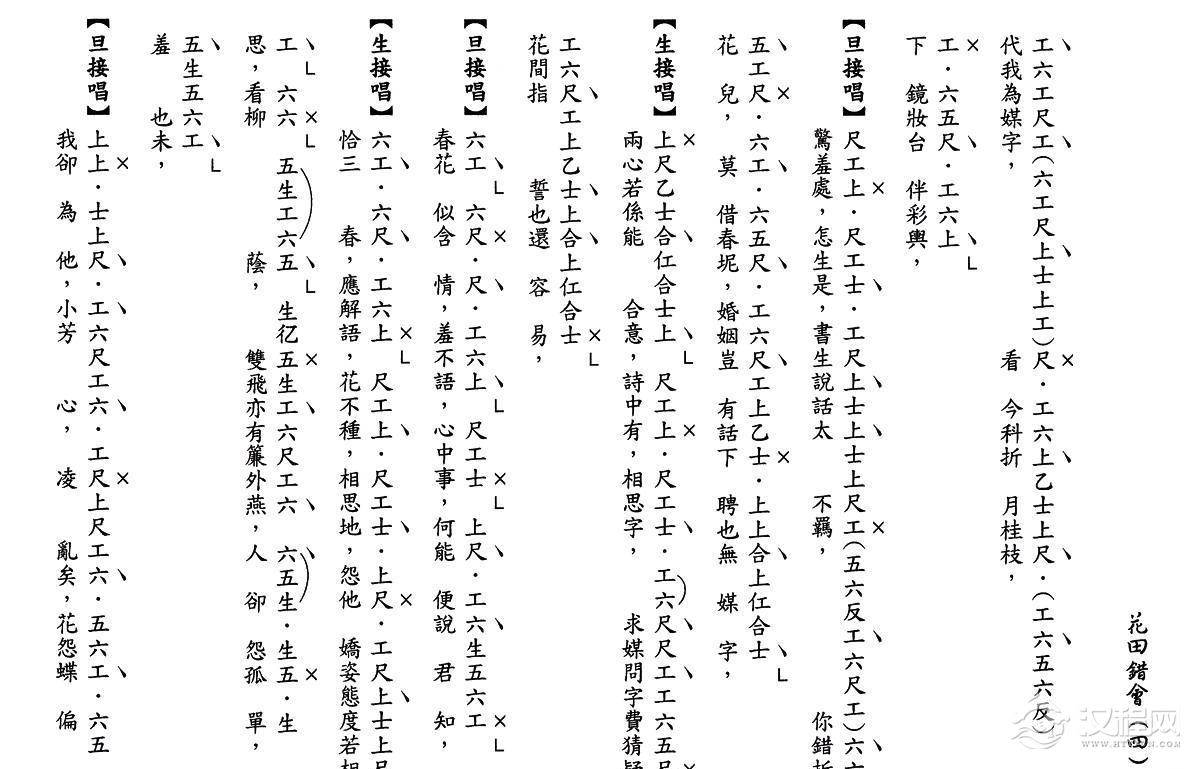 花田錯會(四)
工六工尺工(六工尺上士上工)尺·工六上乙士上尺·(工六五六反)
代我為媒字，看今科折月桂枝，
工·六五尺·工六上
下鏡妝台伴彩輿，
【旦接唱】尺工上·尺工士·工尺上士上士上尺工(五六反工六尺工)六
驚羞處，怎生是，書生說話太不羈，你錯折
五工尺·六工·六五尺·工六尺工上乙士·上上合上仜合士
花兒，莫借春坭，婚姻豈有話下聘也無媒字，
【生接唱】上尺乙士合仜合士上尺工上·尺工士·工六尺尺工工六五
兩心若係能合意，詩中有，相思字，求媒問字費猜疑
工六尺工上乙士上合上仜合士
花間指誓也還容易，
【旦接唱】六工六尺·尺·工六上尺工士上尺·工六生五六工
春花似含情，羞不語，心中事，何能便說君知，
【生接唱】六工·六尺·工六上尺工上·尺工士·上尺·工尺上士上
恰三春，應解語，花不種，相思地，怨他嬌姿態度若
工六六五生工六五生仡五生工六尺工六六五生·生五·生
思，看柳蔭，雙飛亦有簾外燕，人卻怨孤單，
五生五六工
羞也未，
【旦接唱】上上·士上尺·工六尺工六·工尺上尺工六·五六工·六五
我卻為他，小芳心，凌亂矣，花怨蝶偏
汉程网